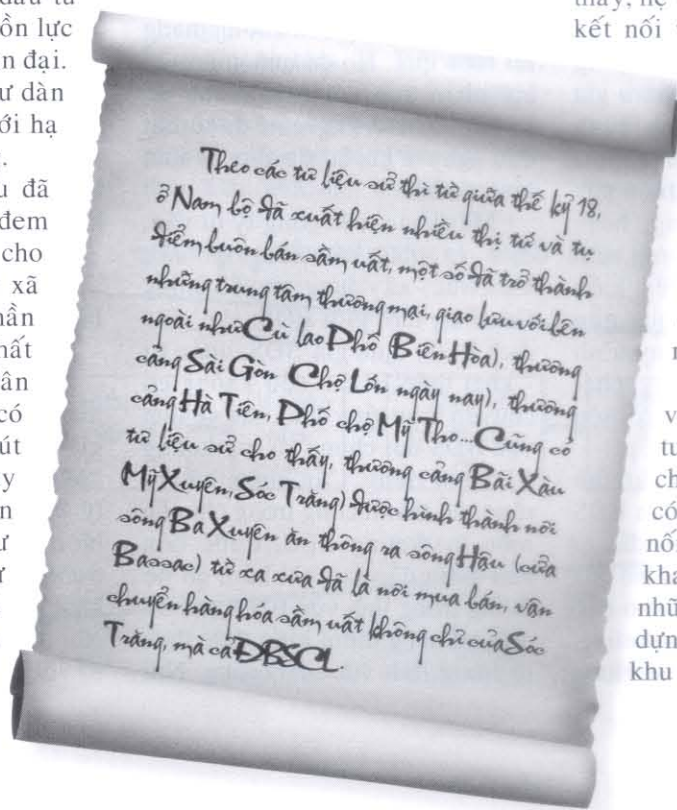 đầu tư
ồn lực
n đại.
ư dàn
ới hạ
u đã
đem
cho
xã
hần
hất
ân
có
út
y
n
ư
Theo các tư liệu sử thì từ giữa thế kỷ 18,
ở Nam bộ đã xuất hiện nhiều thị tứ và tụ
điểm buôn bán sầm uất, một số đã trở thành
những trung tâm thương mại, giao lưu với bên
ngoài như Cù lao Phố Biên Hòa), thương
cảng Sài Gòn Chợ Lớn ngày nay), thương
cảng Hà Tiên, Phố chợ Mỹ Tho... Cũng có
tư liệu sử cho thấy, thương cảng Bãi Xàu
Mỹ Xuyên, Sóc Trăng) được hình thành nơi
sông Ba Xuyên ăn thông ra sông Hậu (cửa
Bassac) từ xa xưa đã là nơi mua bán, vận
chuyển hàng hóa sầm uất không chỉ của Sóc
Trăng, mà cả ĐBSCL.
thấy, hệ
kết nối
v
tư
ch
có
nố
kha
nhữ
dựn
khu